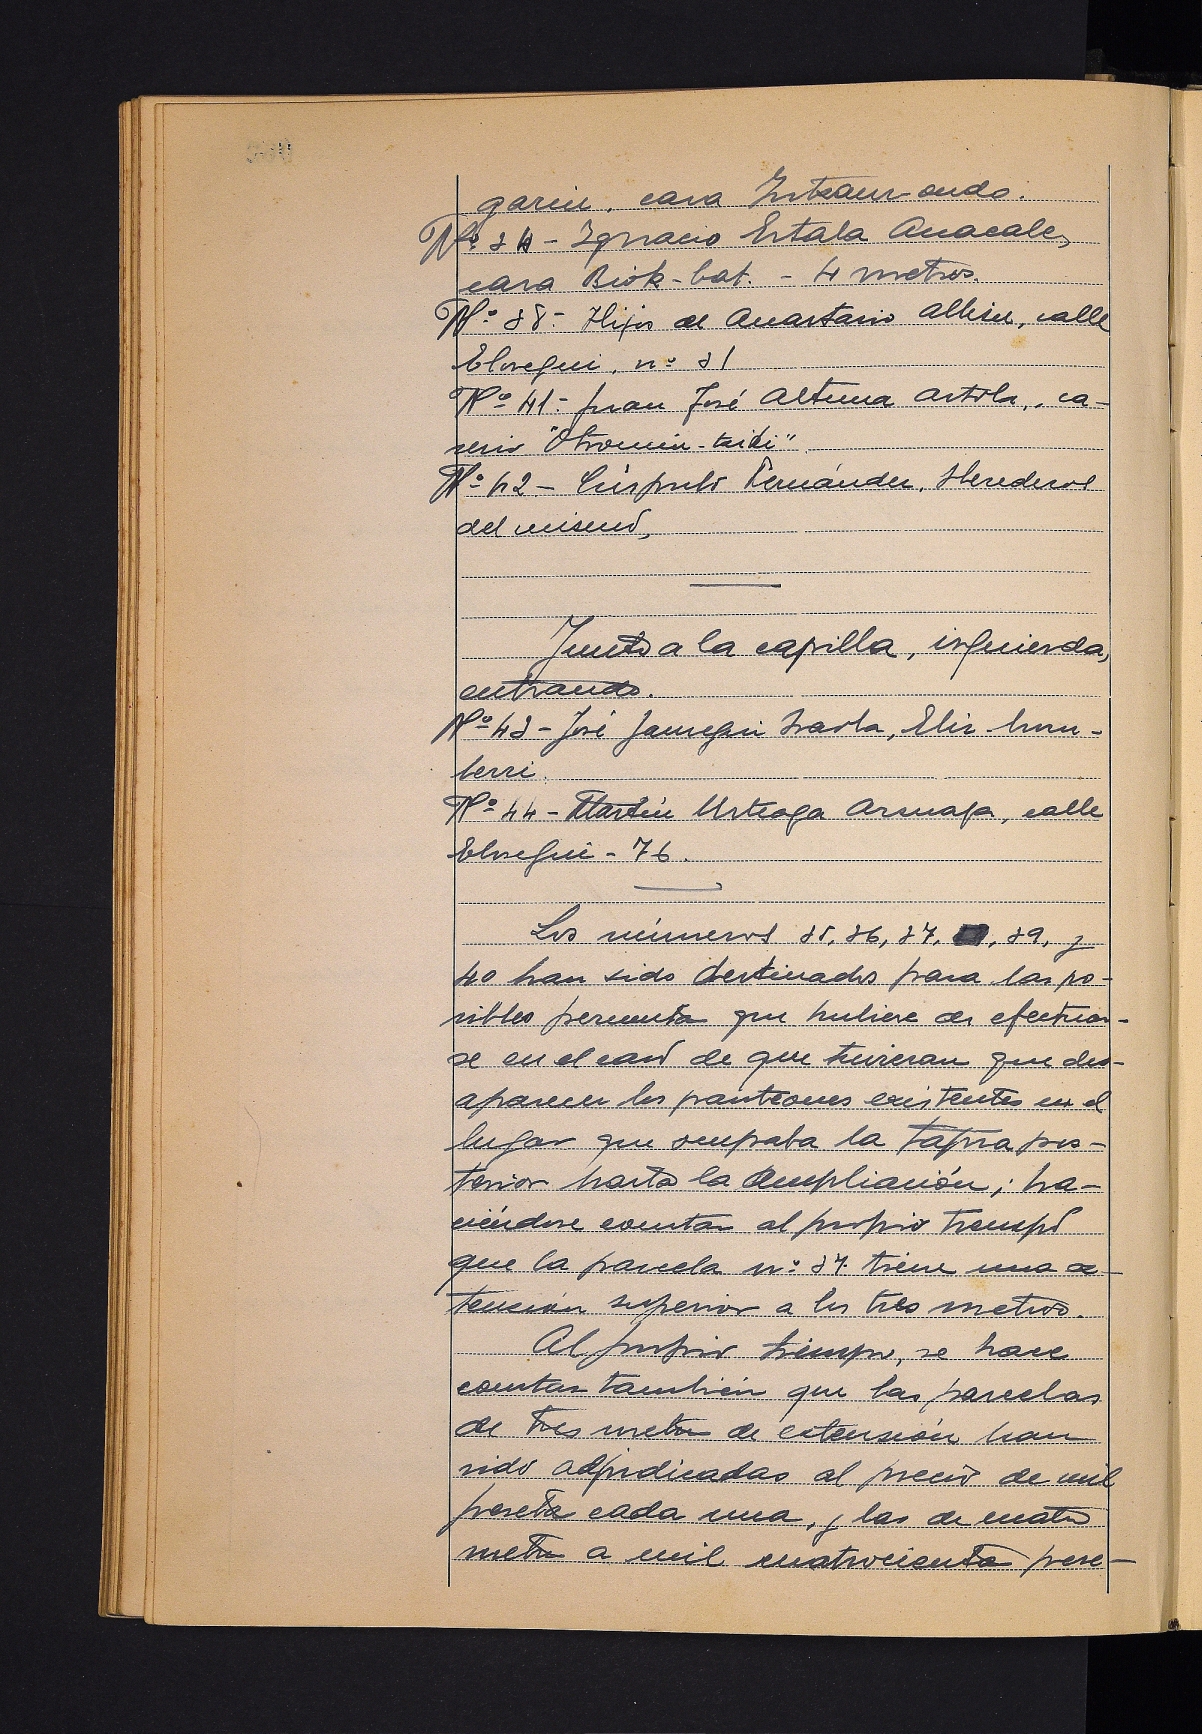 garin, casa Intxaurrondo.
Nº 34 - Ignacio Ertala Anacabe,
casa Biok-bat. - 4 metros.
Nº 38.- Hijos de Anastasio Albisu, calle
Elosegui, nº 31
Nº 41.- Juan José Altuna Artola, ca-
serio "Otromin-txiki"
Nº 42 - Críspulo Fernández, Herederos
del mismo,
Junto a la capilla, izquierda,
entrando.
Nº 43 - José Jauregui Iraola, Eliz-
berri.
Nº 44 - Martín Urteaga calle
Elosegui - 76.
Los números 35, 36, 37, 39, y
40 han sido destinados para las po-
sibles permutas que hubiere de efectuar-
se en el caso de que tuvieran que des-
aparecer los panteones existentes en el
lugar que ocupaba la tapia pos-
terior hasta la Ampliación; ha-
ciéndose constar al propio tiempo
que la parcela nº 37 tiene una ex-
tensión superior a los tres metros.
Al propio tiempo, se hace
constar también que las parcelas
de tres metros de extensión han
sido adjudicadas al precio de mil
pesetas cada una, y las de cuatro
metros a mil cuatrocientas pese-